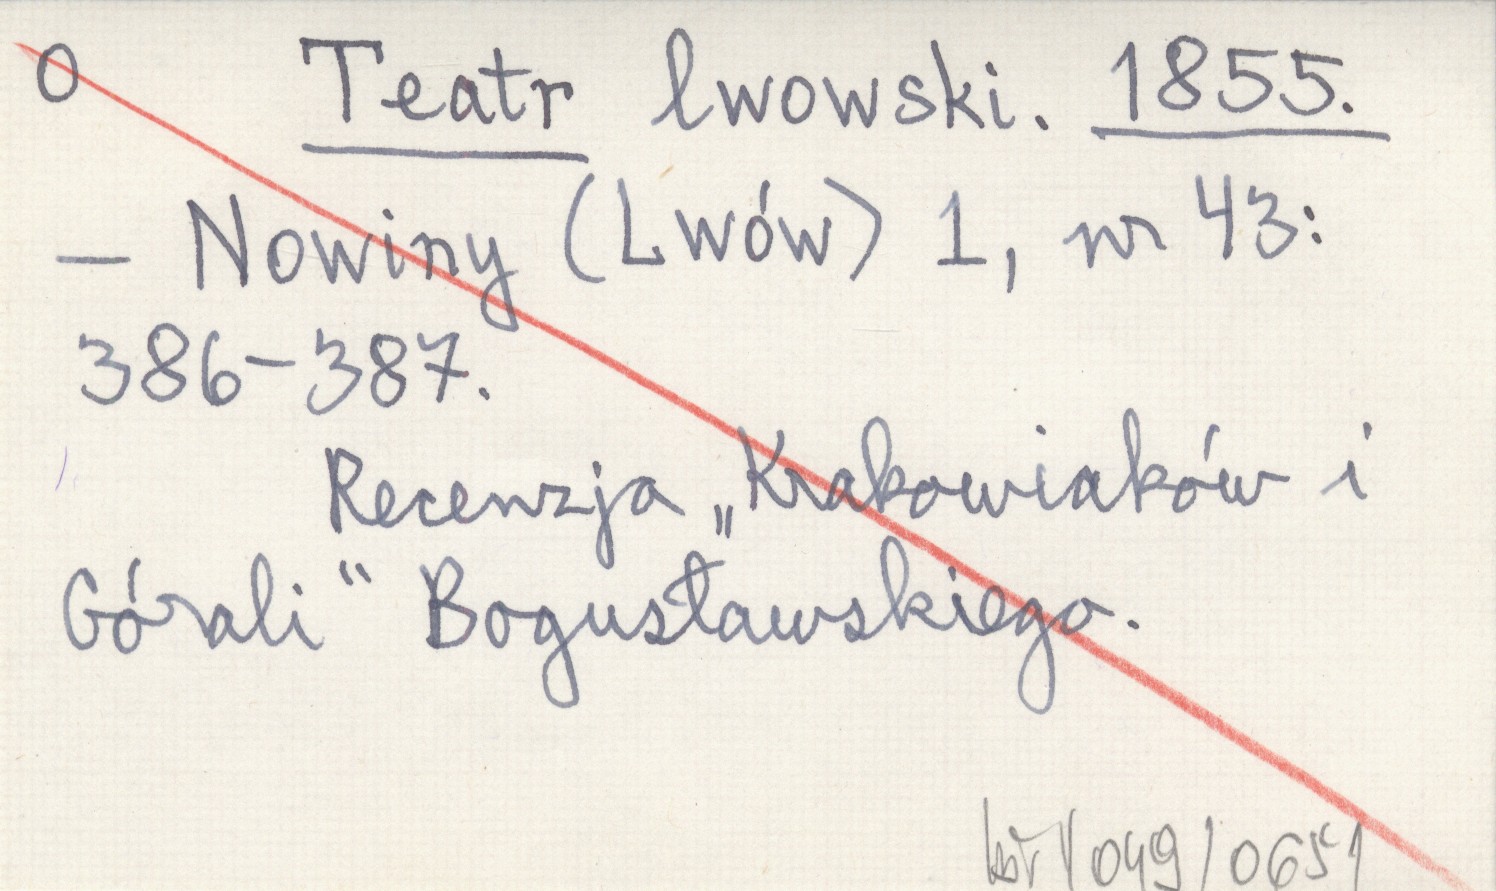 O Teatr lwowski. 1855.
— Nowiny (Lwów) 1, nr 43:
386-387.
Recenzja „Krakowiaków i
Górali“ Bogusławskiego.
049/065